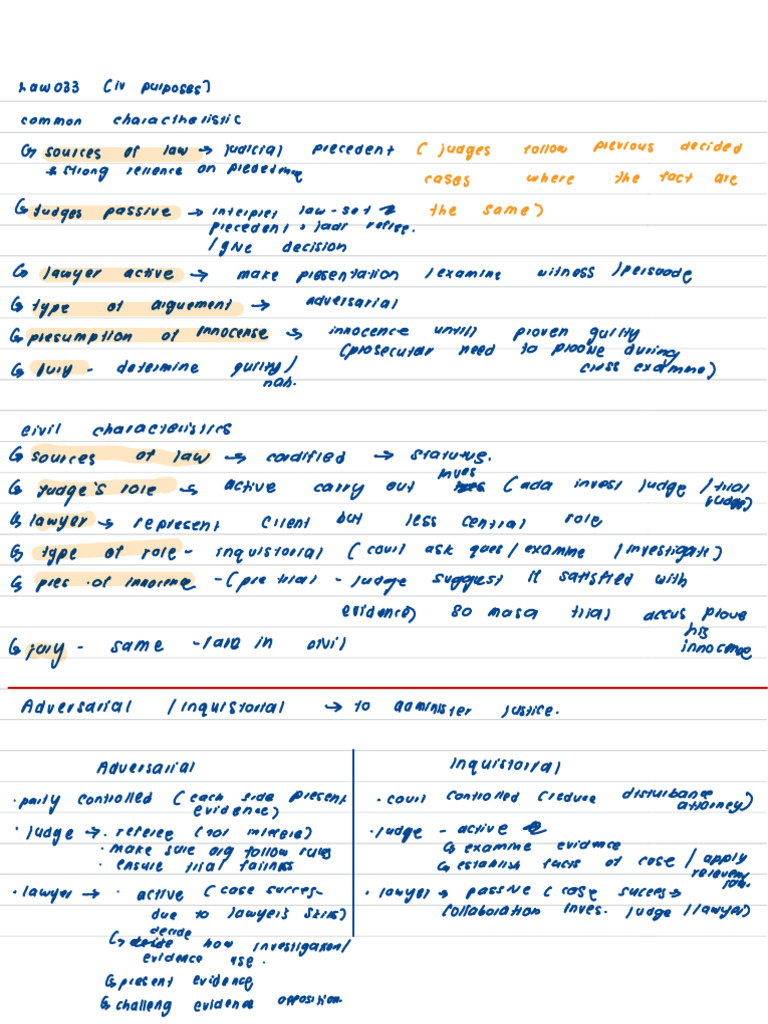 Law033 (iv purposes)
common characteristic
↳ sources of law → judicial precedent ( judges follow previous decided
↳ strong relience on
cases where the fact are
↳ Judges passive → interpret law - set
the same)
precedent
/ give decision
↳ lawyer active → make presentation / examine witness / persuade
↳ type of arguement → adversarial
↳ presumption of innocense → innocence until proven guilty
(prosecutar need to prove during
↳ Jury - determine guilty /
cross examine)
nah.
civil characteristics
↳ sources of law → cordified → statutue.
↳ Judge's role → active carry out inves (ada invest judge / trial
judge)
↳ lawyer → represent client but less central role
↳ type of role - inquistorial ( court ask ques / examine / investigate)
↳ pres. of innocence - (pre trial - judge suggest if satisfied with
evidence) so masa trial accus prove
his
innocence
↳ jury - same - in civil
Adversarial / Inquistorial → to administer justice.
Adversarial
· party controlled ( each side present
evidence)
· judge → · referee (not
· make sure arg follow rules
· ensure trial fairness
· lawyer → · active ( case succes -
due to lawyer's skills)
decide
↳ how investigation /
evidence use .
↳ present evidence
↳ challeng evidence opposition
Inquistorial
· court controlled (reduce disturbance
attorney)
· judge - active
↳ examine evidence
↳ establish facts of case / apply
relevent
law.
· lawyer → passive ( case succes →
collaboration inves. judge / lawyer)